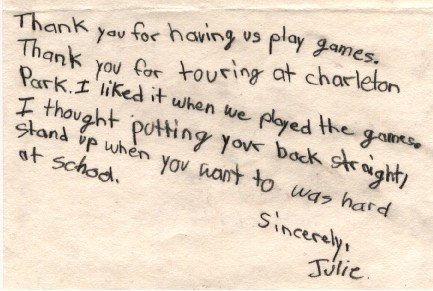 Thank you for having us play games.
Thank you for touring at charleton
Park. I liked it when we played the games.
I thought putting your back straight,
stand up when you want to was hard
at school.
Sincerely,
Julie.